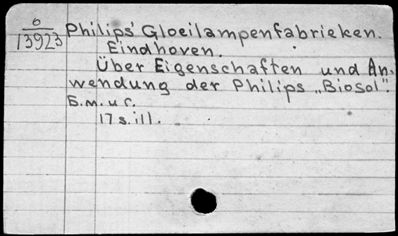 0
13923
Philips' Gloeilampenfabrieken.
Eindhoven.
Über Eigenschaften und An-
wendung der Philips „Biosol".
Б.м. u г.
17 s. ill.